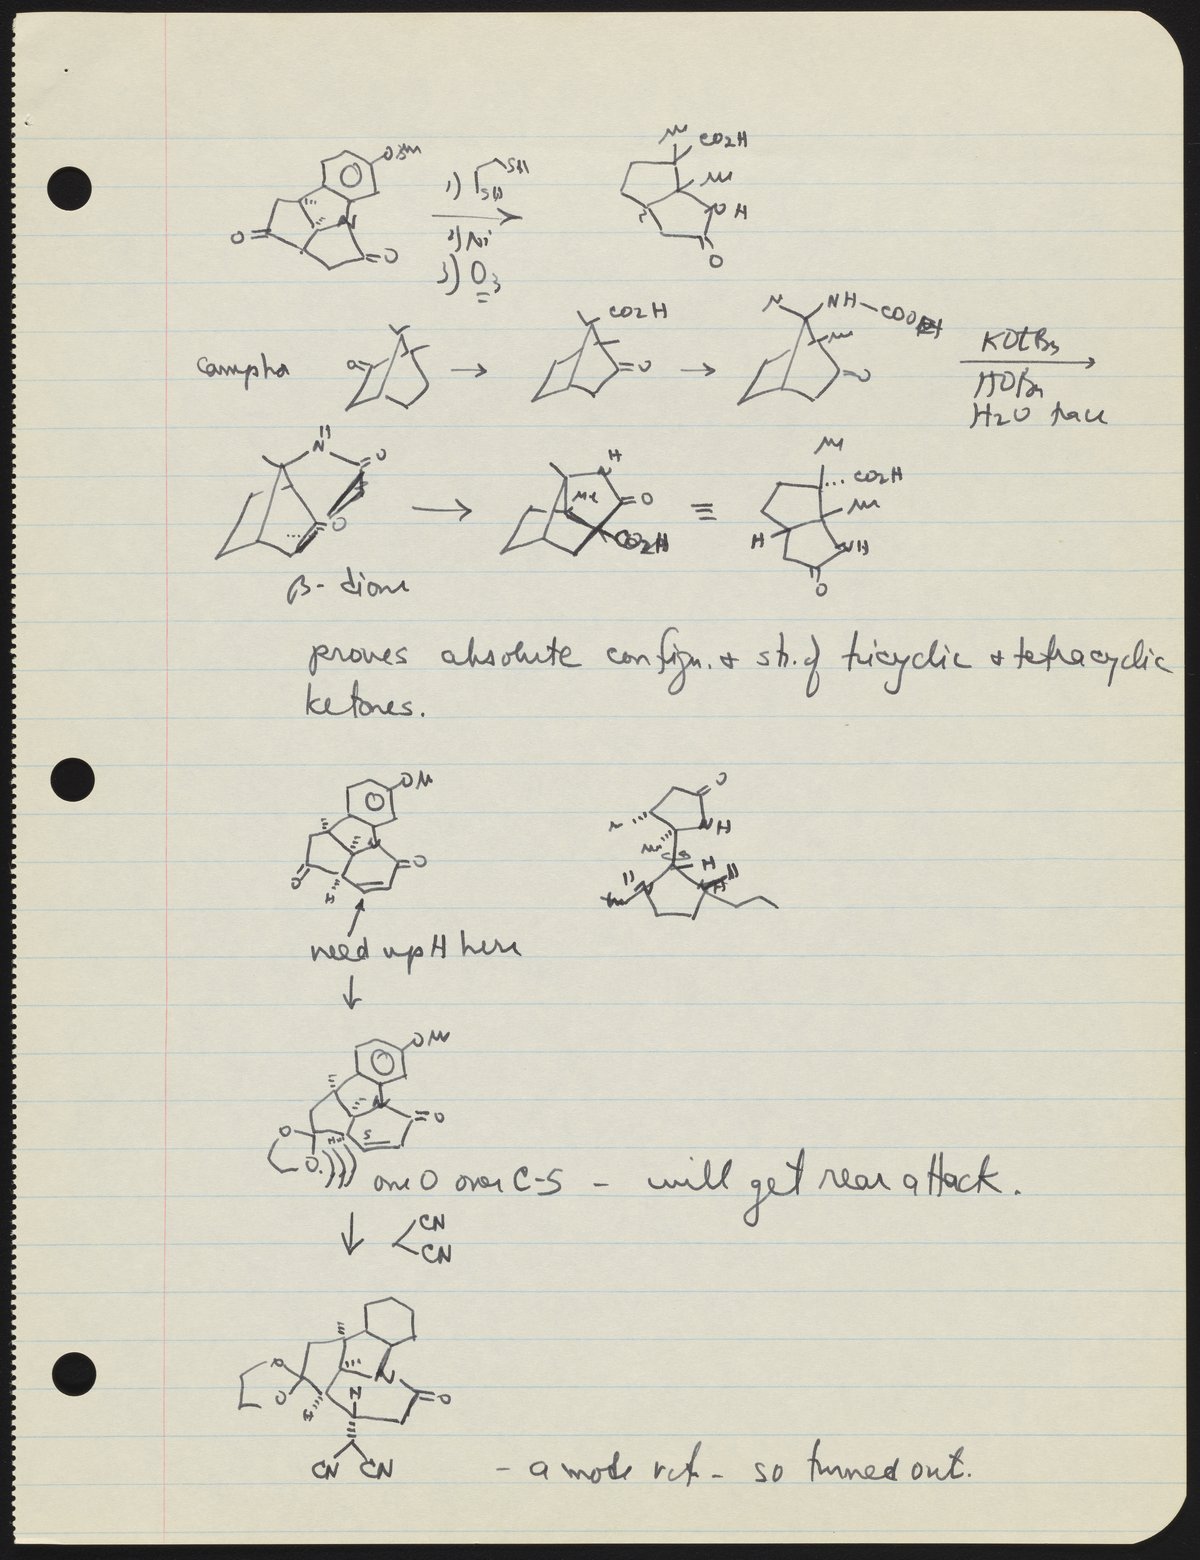 OMe
1) SH
SH
2) Ni
3) O3
O
N
O
CO2H
NH
O
camphor
O
CO2H
O
NH-COOEt
O
KOtBu
HOBu
H2O trace
H
N
O
O
β-dione
H
N
O
Me
CO2H
≡
Me
CO2H
Me
H
NH
O
proves absolute confign. & st. of tricyclic & tetracyclic
ketones.
OM
N
O
O
H
O
NH
H
H
need up H here
OM
N
O
O
O
H
5
one O over C-5 - will get rear attack.
CN
CN
O
O
N
O
H
CN CN
- a mode rct - so turned out.